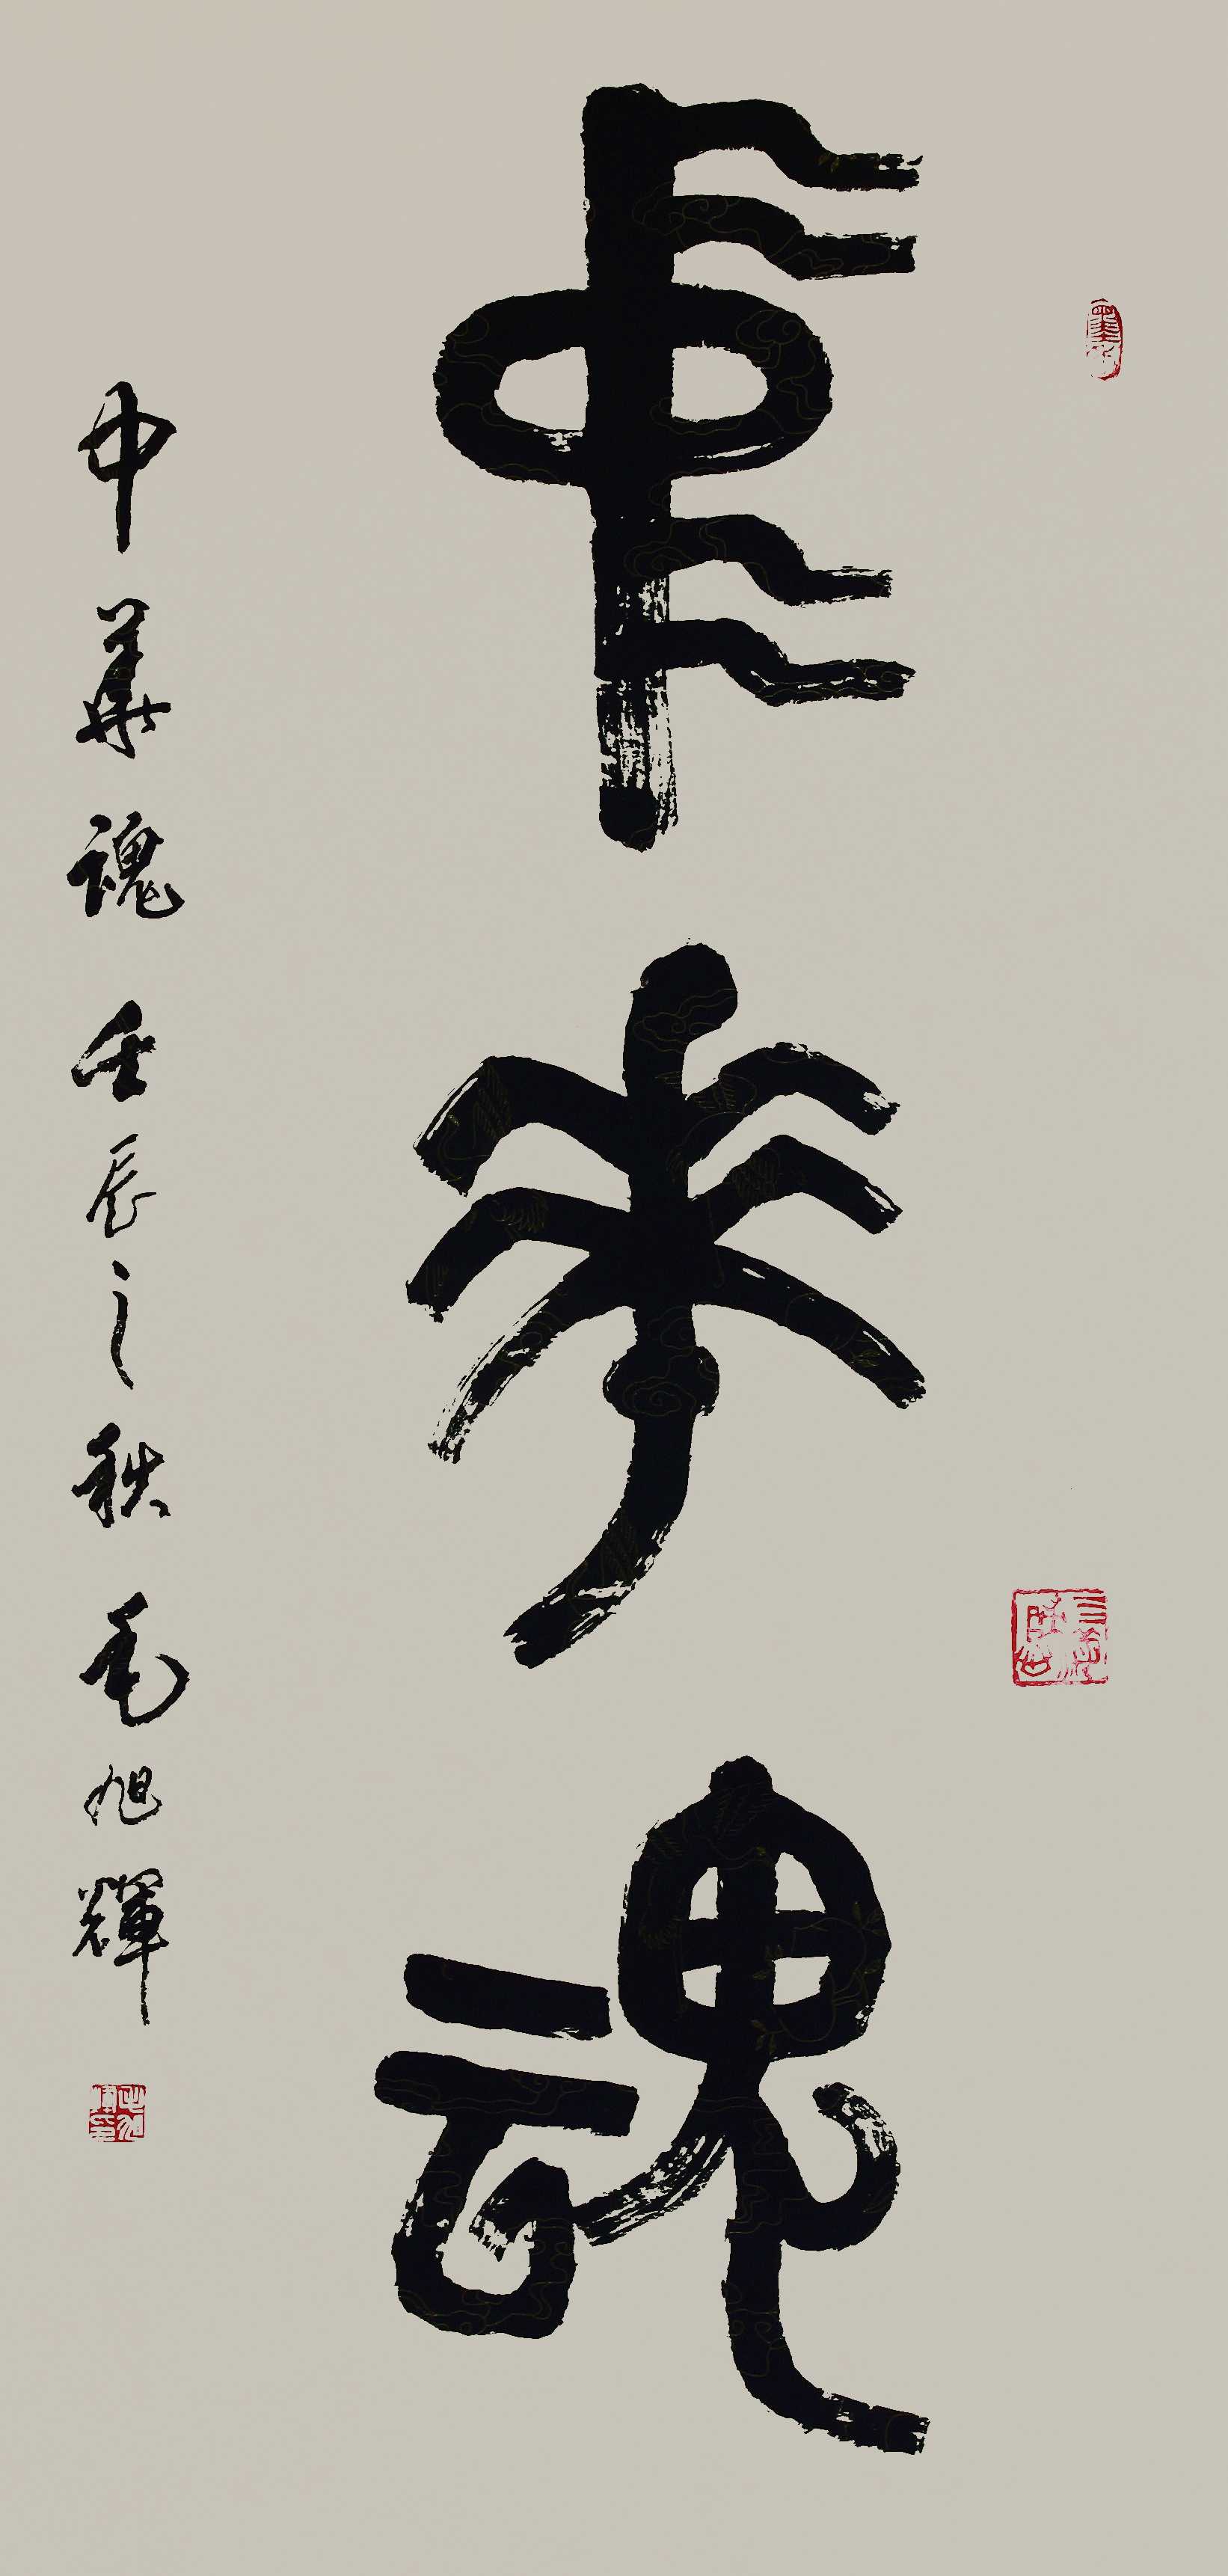 中華魂
中華魂 壬辰之秋 毛旭輝